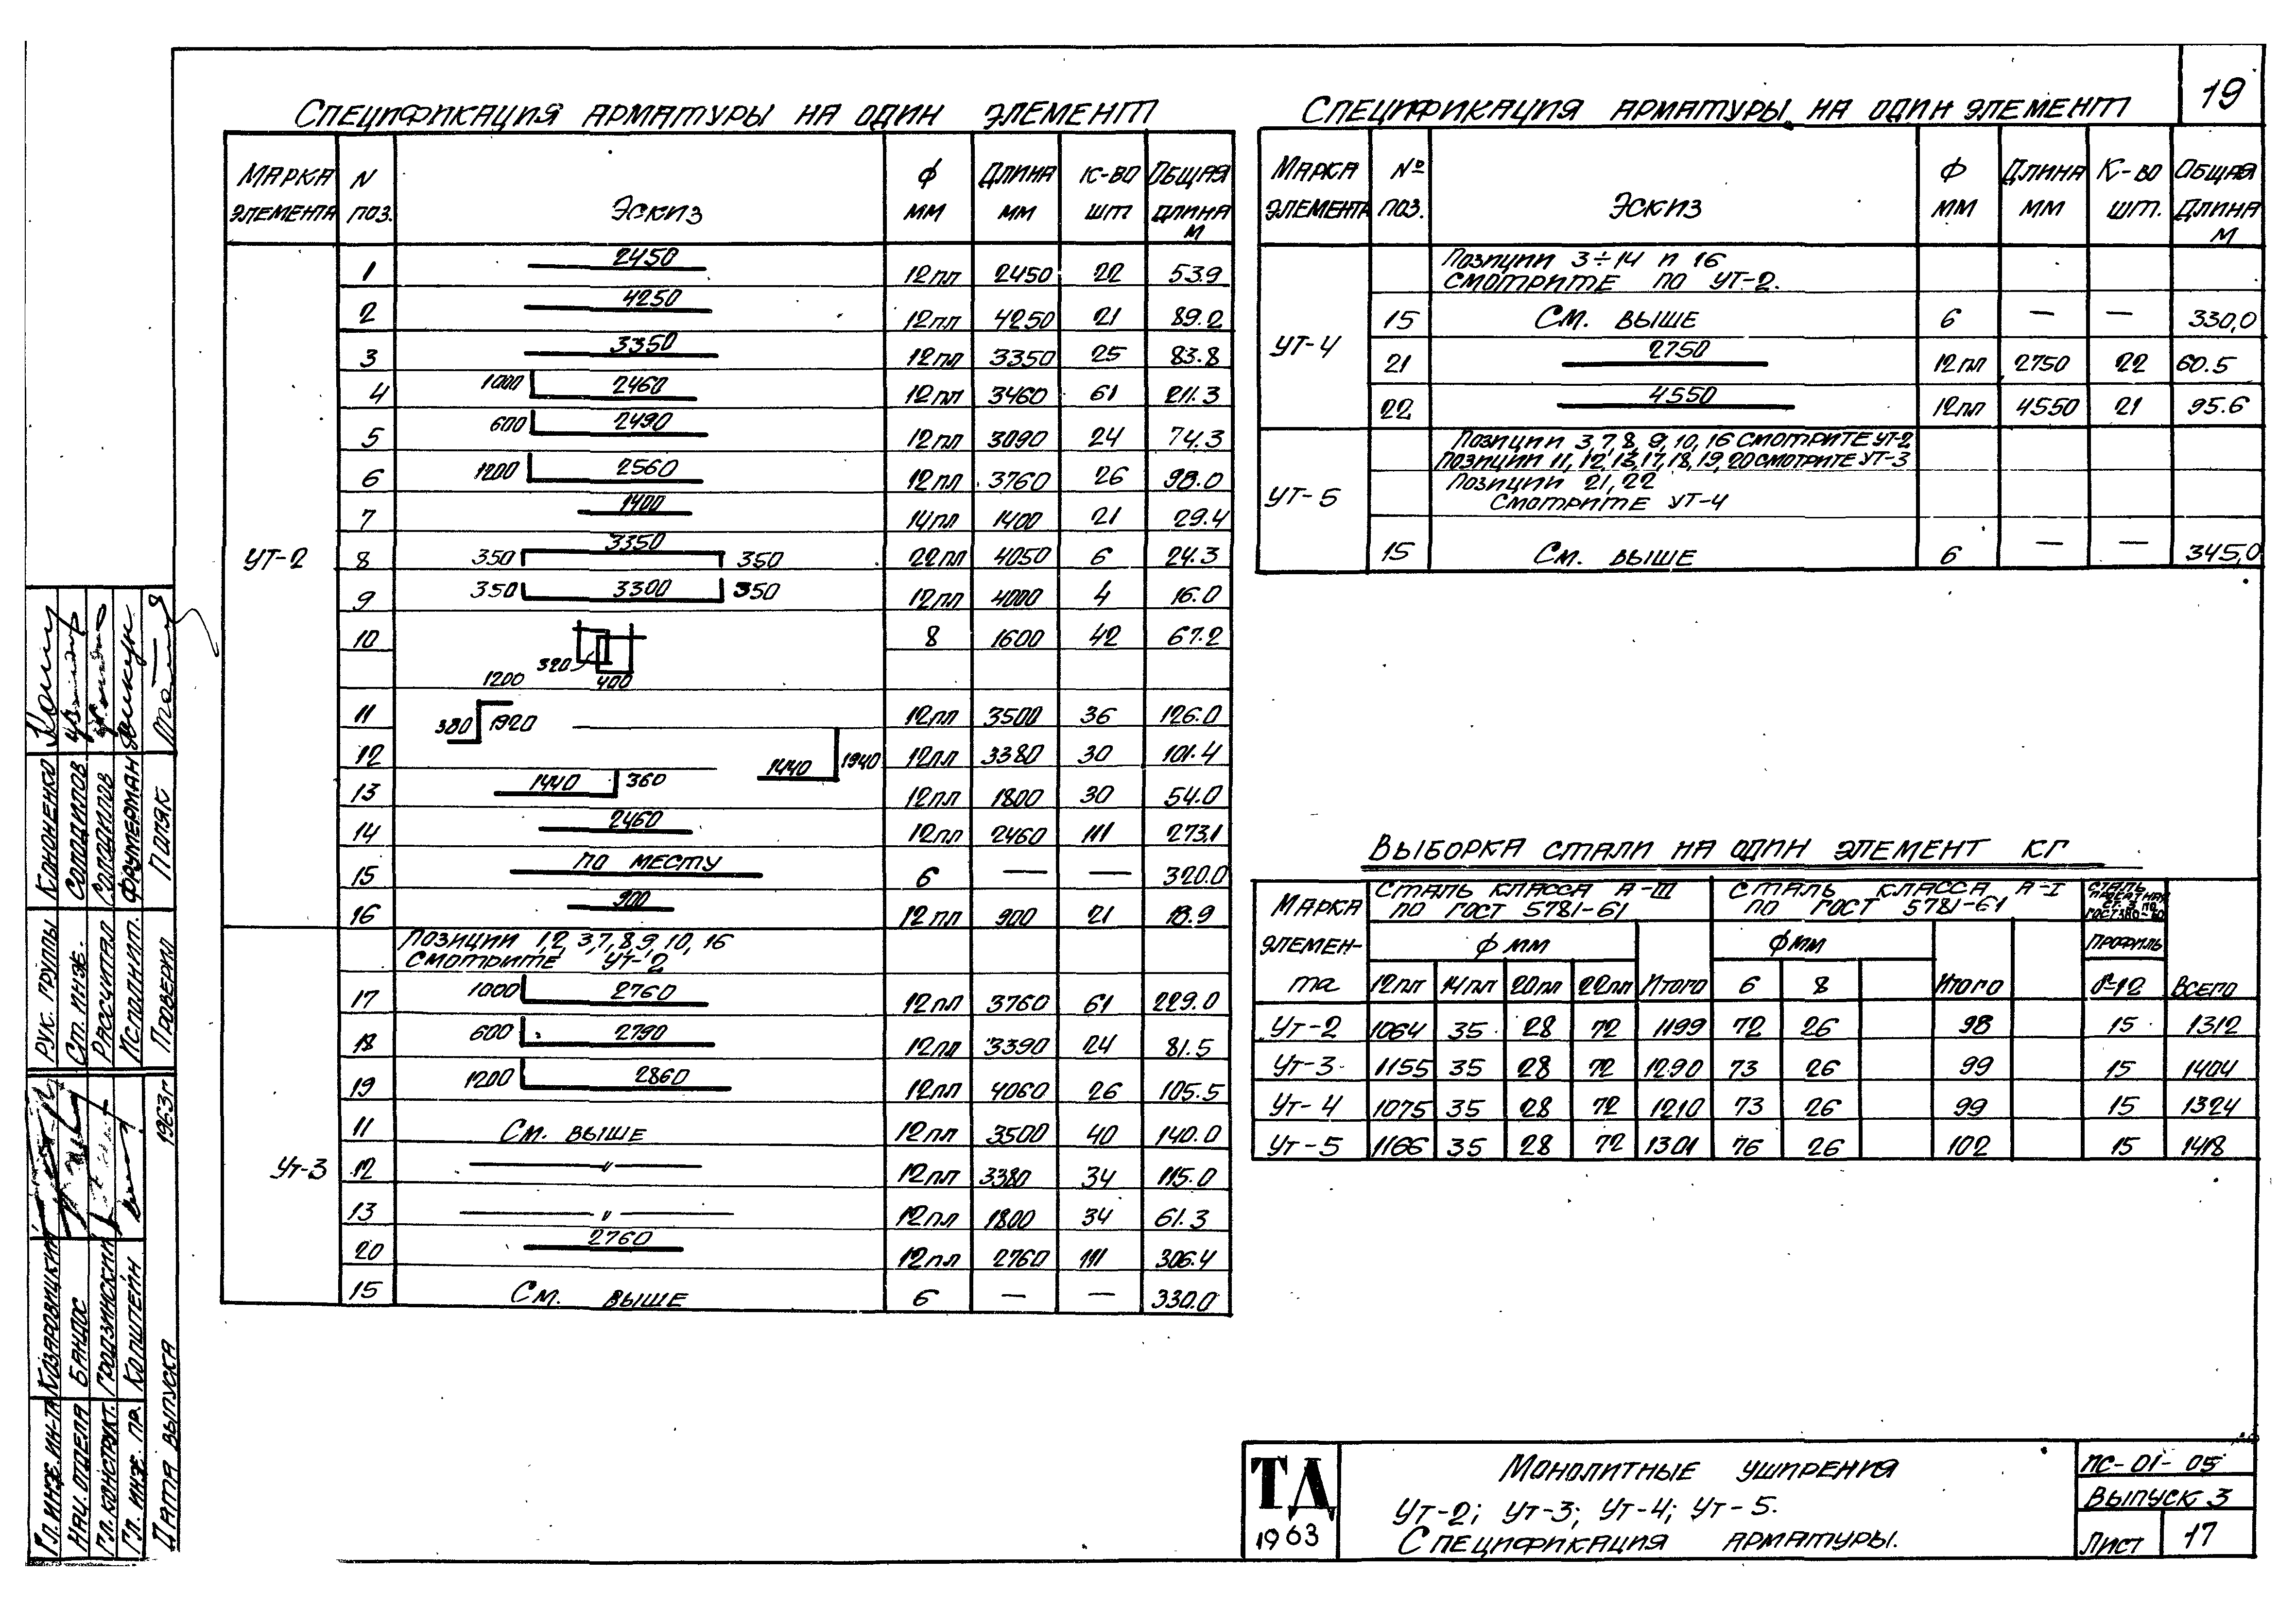 19
Спецификация арматуры на один элемент
Марка элемента N поз. Эскиз ф мм Длина мм к-во шт Общая длина м
УТ-2
1 2450 12пл 2450 22 53.9
2 4250 12пл 4250 21 89.2
3 3350 12пл 3350 25 83.8
4 1000 2460 12пл 3460 61 211.3
5 600 2490 12пл 3090 24 74.3
6 1200 2560 12пл 3760 26 98.0
7 1400 14пл 1400 21 29.4
8 350 3350 350 22пл 4050 6 24.3
9 350 3300 350 12пл 4000 4 16.0
10 320 400 8 1600 42 67.2
11 1200 380 1920 12пл 3500 36 126.0
12 1440 1940 12пл 3380 30 101.4
13 1440 360 12пл 1800 30 54.0
14 2460 12пл 2460 111 273,1
15 по месту 6 — — 320.0
16 900 12пл 900 21 18.9
УТ-3
Позиции 1,2, 3,7, 8,9, 10, 16
смотрите УТ-2
17 1000 2760 12пл 3760 61 229.0
18 600 2790 12пл 3390 24 81.5
19 1200 2860 12пл 4060 26 105.5
11 См. выше 12пл 3500 40 140.0
12 — " — 12пл 3380 34 115.0
13 — " — 12пл 1800 34 61.3
20 2760 12пл 2760 111 306.4
15 См. выше 6 — — 330.0
Спецификация арматуры на один элемент
Марка элемента № поз. Эскиз Ф мм Длина мм К-во шт. Общая длина м
УТ-4
Позиции 3÷14 и 16
смотрите по УТ-2.
15 См. выше 6 — — 330,0
21 2750 12пл 2750 22 60.5
22 4550 12пл 4550 21 95.6
УТ-5
Позиции 3,7, 8, 9, 10, 16 смотрите УТ-2
Позиции 11, 12, 13, 17, 18, 19, 20 смотрите УТ-3
Позиции 21, 22
смотрите УТ-4
15 См. выше 6 — — 345,0
Выборка стали на один элемент кг
Марка элемен-та Сталь класса А-III по ГОСТ 5781-61 Сталь класса А-I по ГОСТ 5781-61 Сталь прокатная Ст. 3 по ГОСТ 380-60 Всего
ф мм Итого ф мм Итого Профиль
12пл 14пл 20пл 22пл 6 8 №12
УТ-2 1064 35 28 72 1199 72 26 98 15 1312
УТ-3 1155 35 28 72 1290 73 26 99 15 1404
УТ-4 1075 35 28 72 1210 73 26 99 15 1324
УТ-5 1166 35 28 72 1301 76 26 102 15 1418
ТД
1963
Монолитные уширения
УТ-2; УТ-3; УТ-4; УТ-5.
Спецификация арматуры.
ПС-01-05
Выпуск 3
Лист 17
Рук. группы Кононенко
Ст. инж. Солодилов
Рассчитал Солодилов
Исполнит. Фрумерман
Проверил Поляк
Гл. инж. ин-та Козаровицкий
Нач. отдела Бандос
Гл. конструкт. Гродзинский
Гл. инж. пр. Копштейн
Дата выпуска 1963г